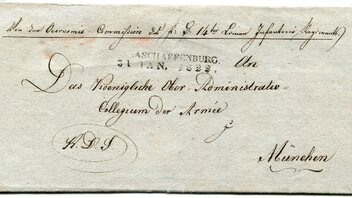 Von der Oeconomie Commission des k. b. 14ten Linien Infanterie Regiments
ASCHAFFENBURG.
31 JAN. 1822.
An
Das Koenigliche Ober Administratio-
Collegium der Armée
K. D. S
München